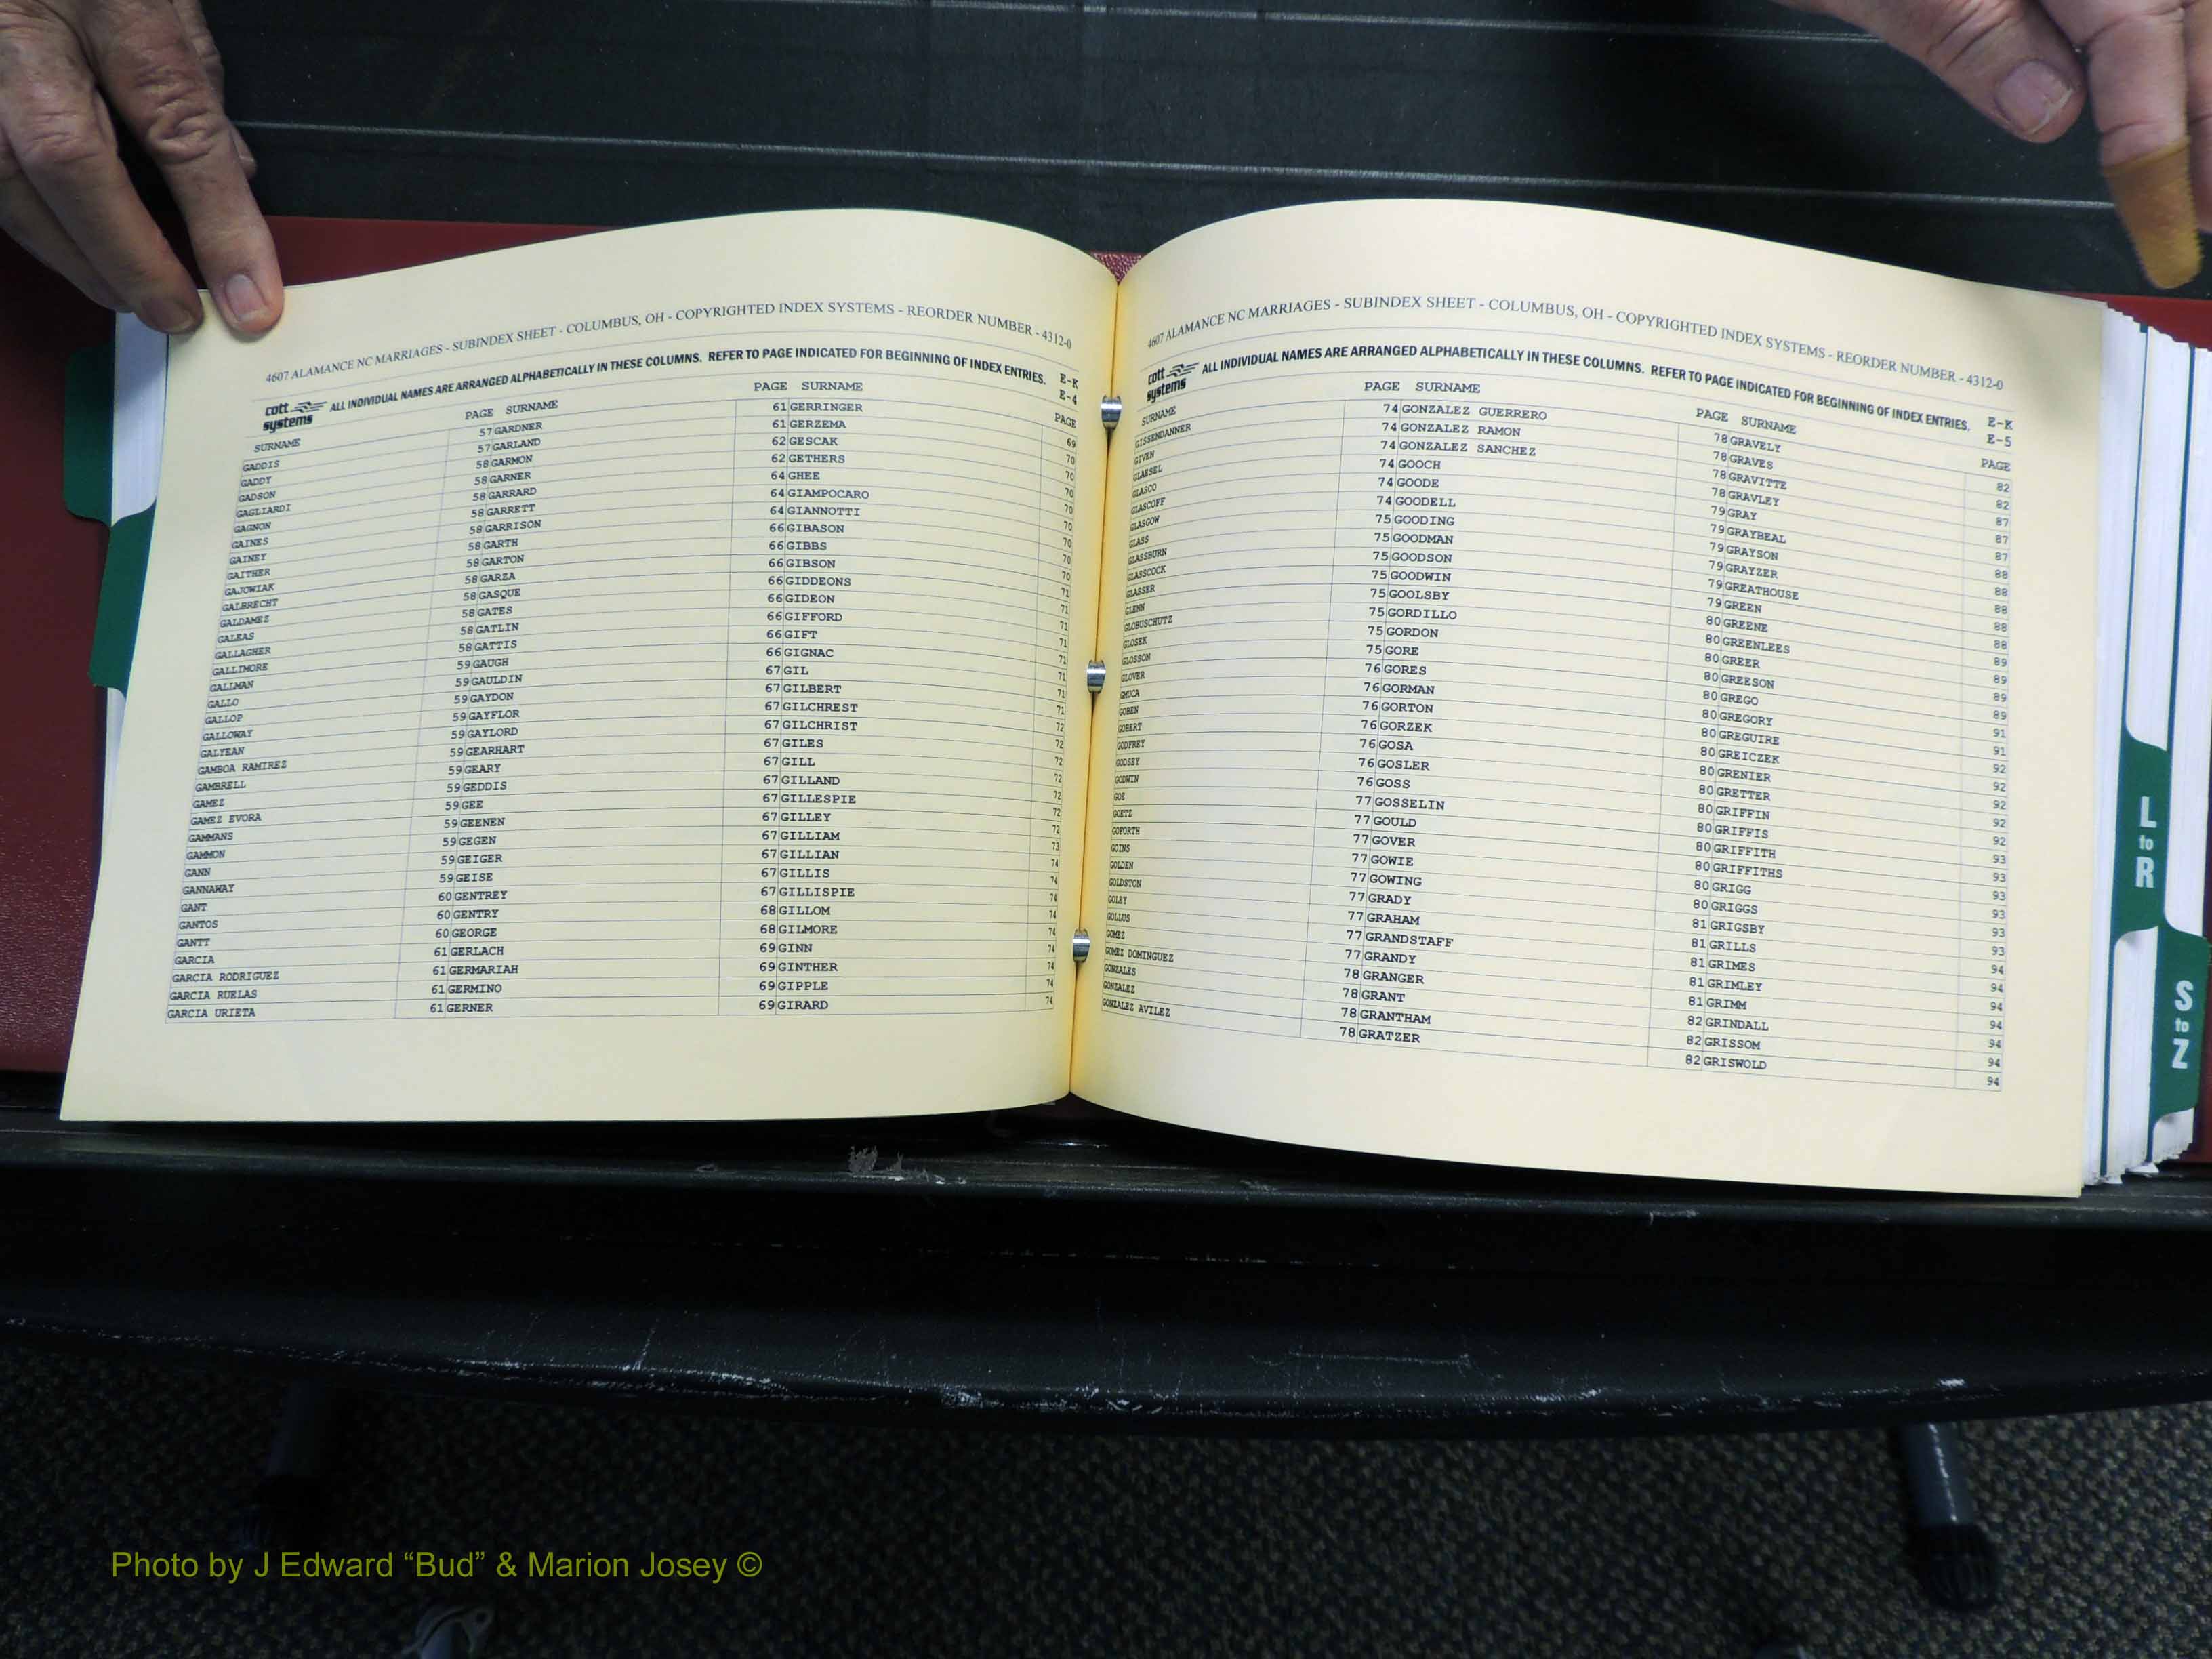 4607 ALAMANCE NC MARRIAGES - SUBINDEX SHEET - COLUMBUS, OH - COPYRIGHTED INDEX SYSTEMS - REORDER NUMBER - 4312-0
cott systems ALL INDIVIDUAL NAMES ARE ARRANGED ALPHABETICALLY IN THESE COLUMNS. REFER TO PAGE INDICATED FOR BEGINNING OF INDEX ENTRIES. E-K
E-4
SURNAME PAGE SURNAME PAGE SURNAME PAGE
GADDIS 57 GARDNER 61 GERRINGER 69
GADDY 57 GARLAND 61 GERZEMA 70
GADSON 58 GARMON 62 GESCAK 70
GAGLIARDI 58 GARNER 62 GETHERS 70
GAGNON 58 GARRARD 64 GHEE 70
GAINES 58 GARRETT 64 GIAMPOCARO 70
GAINEY 58 GARRISON 64 GIANNOTTI 70
GAITHER 58 GARTH 66 GIBASON 70
GAJOWIAK 58 GARTON 66 GIBBS 70
GALBRECHT 58 GARZA 66 GIBSON 71
GALDAMEZ 58 GASQUE 66 GIDDEONS 71
GALEAS 58 GATES 66 GIDEON 71
GALLAGHER 58 GATLIN 66 GIFFORD 71
GALLIMORE 58 GATTIS 66 GIFT 71
GALLMAN 59 GAUGH 66 GIGNAC 71
GALLO 59 GAULDIN 67 GIL 71
GALLOP 59 GAYDON 67 GILBERT 71
GALLOWAY 59 GAYFLOR 67 GILCHREST 72
GALYEAN 59 GAYLORD 67 GILCHRIST 72
GAMBOA RAMIREZ 59 GEARHART 67 GILES 72
GAMBRELL 59 GEARY 67 GILL 72
GAMEZ 59 GEDDIS 67 GILLAND 72
GAMEZ EVORA 59 GEE 67 GILLESPIE 72
GAMMANS 59 GEENEN 67 GILLEY 72
GAMMON 59 GEGEN 67 GILLIAM 73
GANN 59 GEIGER 67 GILLIAN 74
GANNAWAY 59 GEISE 67 GILLIS 74
GANT 60 GENTREY 67 GILLISPIE 74
GANTOS 60 GENTRY 68 GILLOM 74
GANTT 60 GEORGE 68 GILMORE 74
GARCIA 61 GERLACH 69 GINN 74
GARCIA RODRIGUEZ 61 GERMARIAH 69 GINTHER 74
GARCIA RUELAS 61 GERMINO 69 GIPPLE 74
GARCIA URIETA 61 GERNER 69 GIRARD 74
4607 ALAMANCE NC MARRIAGES - SUBINDEX SHEET - COLUMBUS, OH - COPYRIGHTED INDEX SYSTEMS - REORDER NUMBER - 4312-0
cott systems ALL INDIVIDUAL NAMES ARE ARRANGED ALPHABETICALLY IN THESE COLUMNS. REFER TO PAGE INDICATED FOR BEGINNING OF INDEX ENTRIES. E-K
E-5
SURNAME PAGE SURNAME PAGE SURNAME PAGE
GISSENDANNER 74 GONZALEZ GUERRERO 78 GRAVELY 82
GIVEN 74 GONZALEZ RAMON 78 GRAVES 82
GLAESEL 74 GONZALEZ SANCHEZ 78 GRAVITTE 87
GLASCO 74 GOOCH 78 GRAVLEY 87
GLASCOFF 74 GOODE 79 GRAY 87
GLASGOW 74 GOODELL 79 GRAYBEAL 88
GLASS 75 GOODING 79 GRAYSON 88
GLASSBURN 75 GOODMAN 79 GRAYZER 88
GLASSCOCK 75 GOODSON 79 GREATHOUSE 88
GLASSER 75 GOODWIN 79 GREEN 88
GLENN 75 GOOLSBY 80 GREENE 89
GLOBUSCHUTZ 75 GORDILLO 80 GREENLEES 89
GLOSEK 75 GORDON 80 GREER 89
GLOSSON 75 GORE 80 GREESON 89
GLOVER 76 GORES 80 GREGO 91
GMUCA 76 GORMAN 80 GREGORY 91
GOBEN 76 GORTON 80 GREGUIRE 92
GOBERT 76 GORZEK 80 GREICZEK 92
GODFREY 76 GOSA 80 GRENIER 92
GODSEY 76 GOSLER 80 GRETTER 92
GODWIN 76 GOSS 80 GRIFFIN 92
GOE 77 GOSSELIN 80 GRIFFIS 93
GOETZ 77 GOULD 80 GRIFFITH 93
GOFORTH 77 GOVER 80 GRIFFITHS 93
GOINS 77 GOWIE 80 GRIGG 93
GOLDEN 77 GOWING 80 GRIGGS 93
GOLDSTON 77 GRADY 81 GRIGSBY 93
GOLEY 77 GRAHAM 81 GRILLS 94
GOLLUS 77 GRANDSTAFF 81 GRIMES 94
GOMEZ 77 GRANDY 81 GRIMLEY 94
GOMEZ DOMINGUEZ 78 GRANGER 81 GRIMM 94
GONZALES 78 GRANT 82 GRINDALL 94
GONZALEZ 78 GRANTHAM 82 GRISSOM 94
GONZALEZ AVILEZ 78 GRATZER 82 GRISWOLD 94
L
to
R
S
to
Z
Photo by J Edward “Bud” & Marion Josey ©